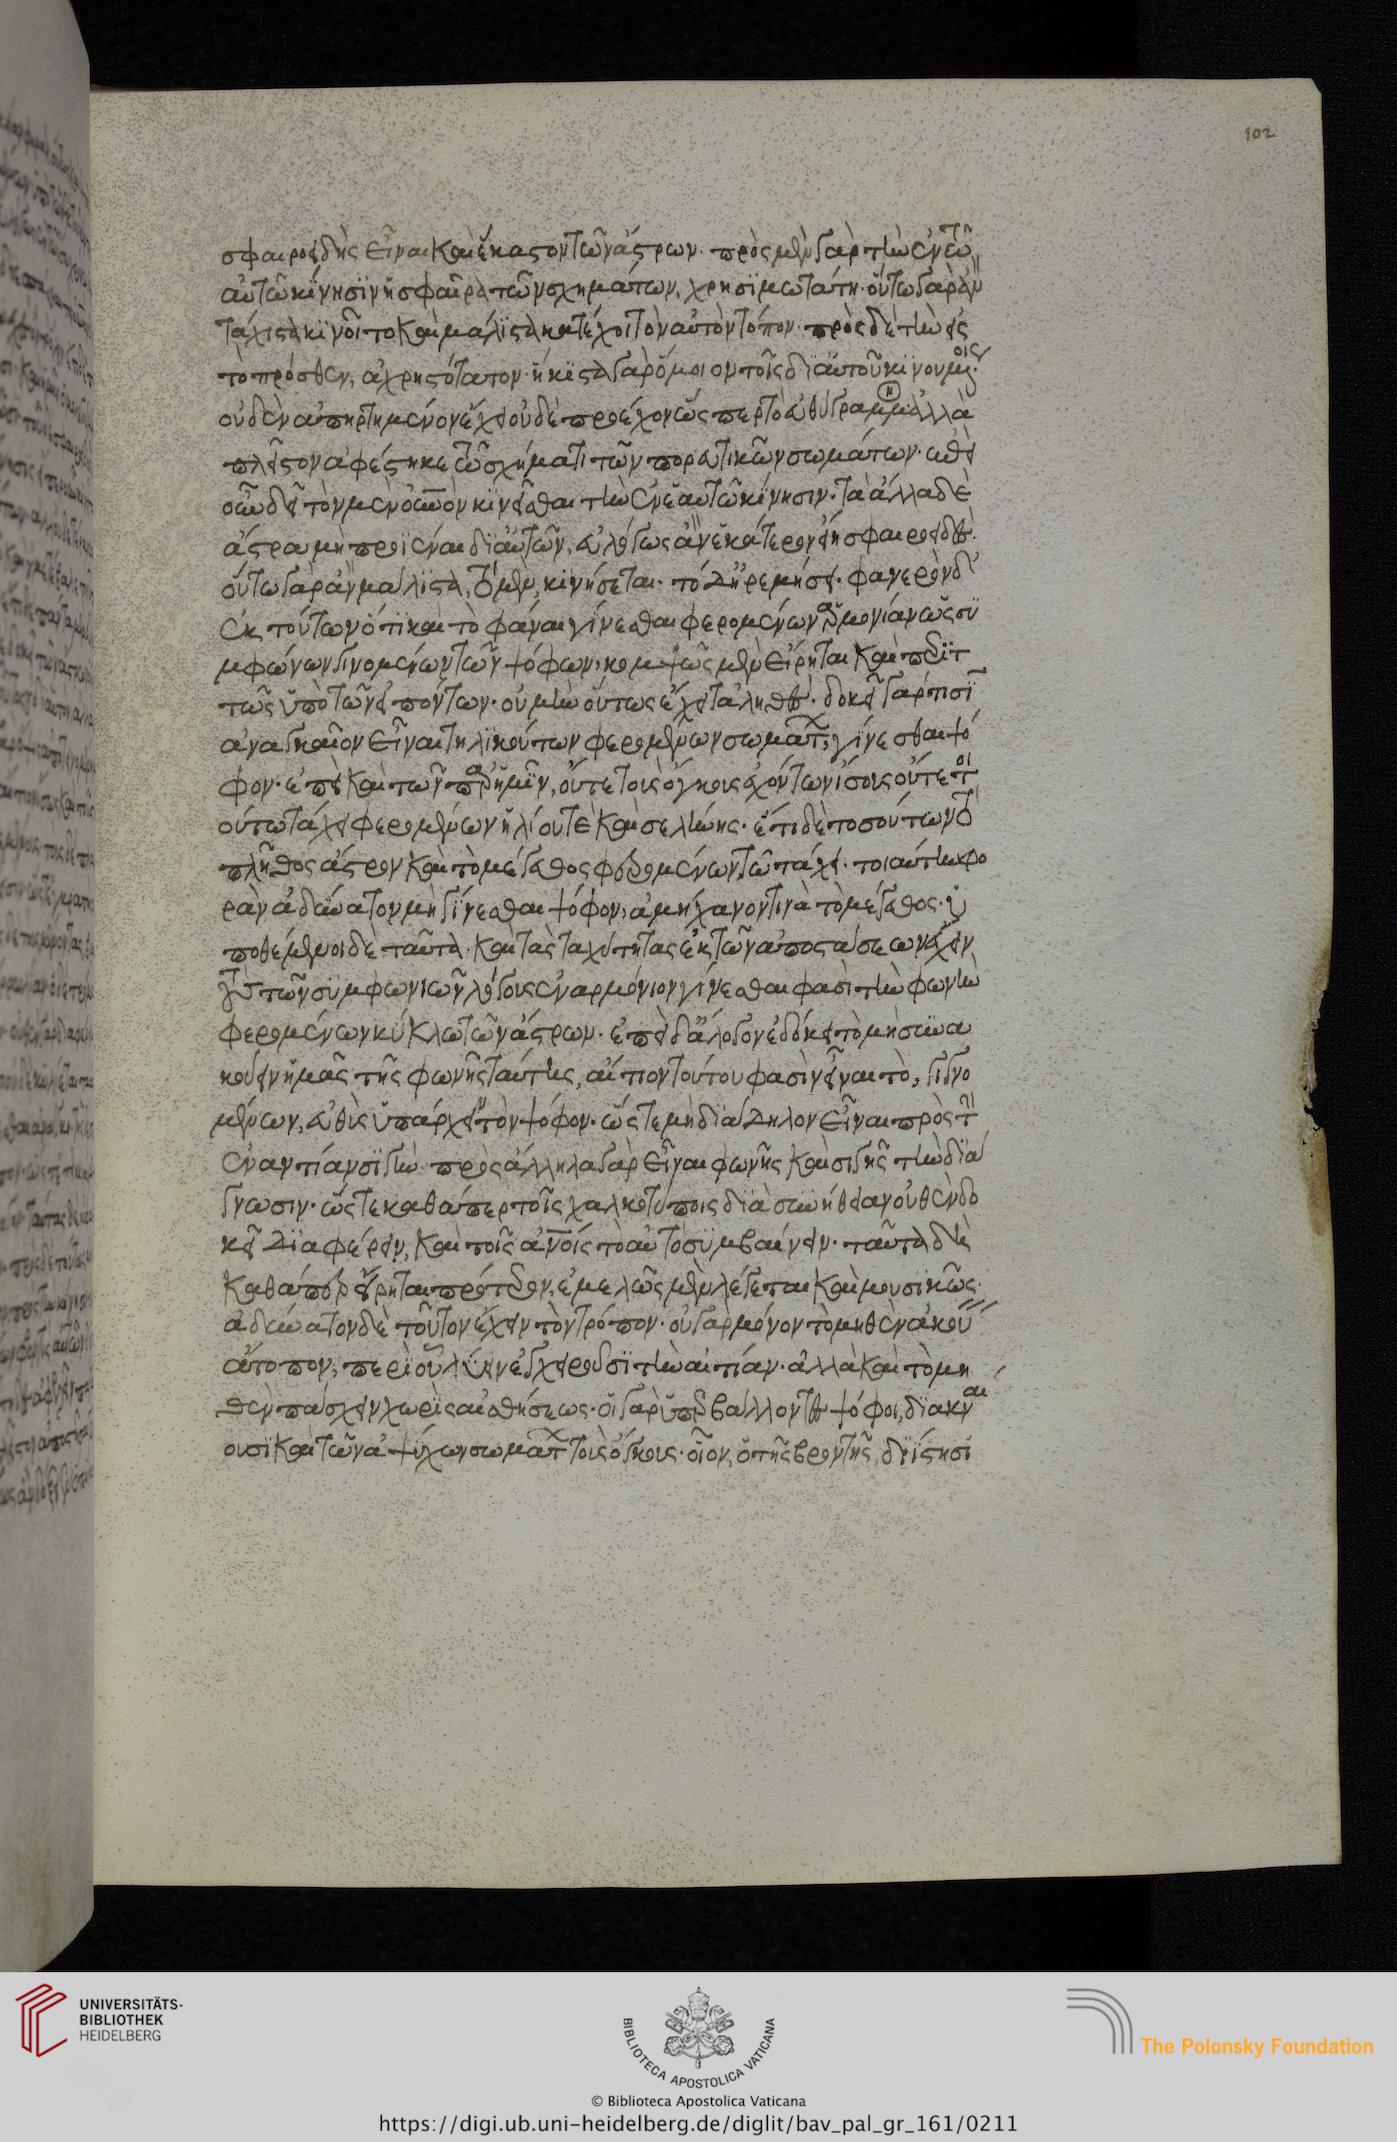 σφαιροειδὴς εἶναι καὶ ἕκαστον τῶν ἄστρων· πρὸς μὲν γὰρ τὴν ἐν τῷ
αὐτῶ κίνησιν ἡ σφαῖρα τῶν σχημάτων, χρησιμωτάτη· οὕτω γὰρ ἂν
τάχιστα κινοῖτο καὶ μάλιστα κατέχοι τὸν αὐτὸν τόπον· πρὸς δὲ τὴν εἰς
τὸ πρόσθεν, ἀχρηστότατον· ἥκιστα γὰρ ὅμοιον τοῖς δι' αὑτοῦ κινουμένοις·
οὐδὲν ἀπηρτημένον ἔχει οὐδὲ προέχον ὥσπερ τὸ εὐθύγραμμον ἀλλὰ
πλεῖστον ἀφέστηκε τῶ σχήματι τῶν πορευτικῶν σωμάτων· ἐπεὶ
οὖν δεῖ τὸν μὲν οὐρανὸν κινεῖσθαι τὴν ἐν ἑαυτῶ κίνησιν· τὰ ἄλλα δὲ
ἄστρα μὴ προϊέναι δι' αὑτῶν, εὐλόγως ἂν ἑκάτερον εἴη σφαιροειδές·
οὕτω γὰρ ἂν μάλιστα, τὸ μὲν, κινήσεται· τὸ δ' ἠρεμήσει· φανερὸν δ'
ἐκ τούτων ὅτι καὶ τὸ φάναι γίνεσθαι φερομένων ἁρμονίαν ὡς συ
μφώνων γινομένων τῶν ψόφων, κομψῶς μὲν εἴρηται καὶ περιτ
τῶς ὑπὸ τῶν εἰπόντων· οὐ μὴν οὕτως ἔχει τἀληθές· δοκεῖ γάρ τισιν
ἀναγκαῖον εἶναι τηλικούτων φερομένων σωμάτων, γίνεσθαι ψό
φον· ἐπεὶ καὶ τῶν παρ' ἡμῖν, οὔτε τοὺς ὄγκους ἐχόντων ἴσους οὔτε τοι
ούτω τάχει φερομένων ἡλίου τὲ καὶ σελήνης· ἔτι δὲ τοσούτων τὸ
πλῆθος ἄστρων καὶ τὸ μέγεθος φερομένων τῶ τάχει τοιαύτην φο
ρὰν ἀδύνατον μὴ γίνεσθαι ψόφον, ἀμήχανόν τινὰ τὸ μέγεθος· ὑ
ποθέμενοι δὲ ταῦτα καὶ τὰς ταχύτητας ἐκ τῶν ἀποστάσεων ἔχειν
τοὺς τῶν συμφωνιῶν λόγους ἐναρμόνιον γίνεσθαι φασὶ τὴν φωνὴν
φερομένων κύκλω τῶν ἄστρων· ἐπεὶ δ' ἄλογον ἐδόκει τὸ μὴ συνα
κούειν ἡμᾶς τῆς φωνῆς ταύτης, αἴτιον τούτου φασὶν εἶναι τὸ, γιγνο
μένων, εὐθὺς ὑπάρχειν τὸν ψόφον· ὥστε μὴ διάδηλον εἶναι πρὸς τὴν
ἐναντίαν σιγὴν· πρὸς ἄλληλα γὰρ εἶναι φωνῆς καὶ σιγῆς τὴν διά
γνωσιν· ὥστε καθάπερ τοῖς χαλκοτύποις διὰ συνήθειαν οὐθὲν δο
κεῖ διαφέρειν, καὶ τοῖς ἀνοις τὸ αὐτὸ συμβαίνειν· ταῦτα δὲ
καθάπερ εἴρηται πρότερον, ἐμμελῶς μὲν λέγεται καὶ μουσικῶς·
ἀδύνατον δὲ τοῦτον ἔχειν τὸν τρόπον· οὐ γὰρ μόνον τὸ μηθὲν ἀκούειν
ἄτοπον, περὶ οὗ λύειν ἐγχειροῦσι τὴν αἰτίαν· ἀλλὰ καὶ τὸ μη
θὲν πάσχειν χωρὶς αἰσθήσεως· οἱ γὰρ ὑπερβάλλοντες ψόφοι, διακναί
ουσι καὶ τῶν ἀψύχων σωμάτων τοὺς ὄγκους· οἷον, ὁ τῆς βροντῆς, διίστησι
102
UNIVERSITÄTS-
BIBLIOTHEK
HEIDELBERG
BIBLIOTECA APOSTOLICA VATICANA
© Biblioteca Apostolica Vaticana
The Polonsky Foundation
https://digi.ub.uni-heidelberg.de/diglit/bav_pal_gr_161/0211